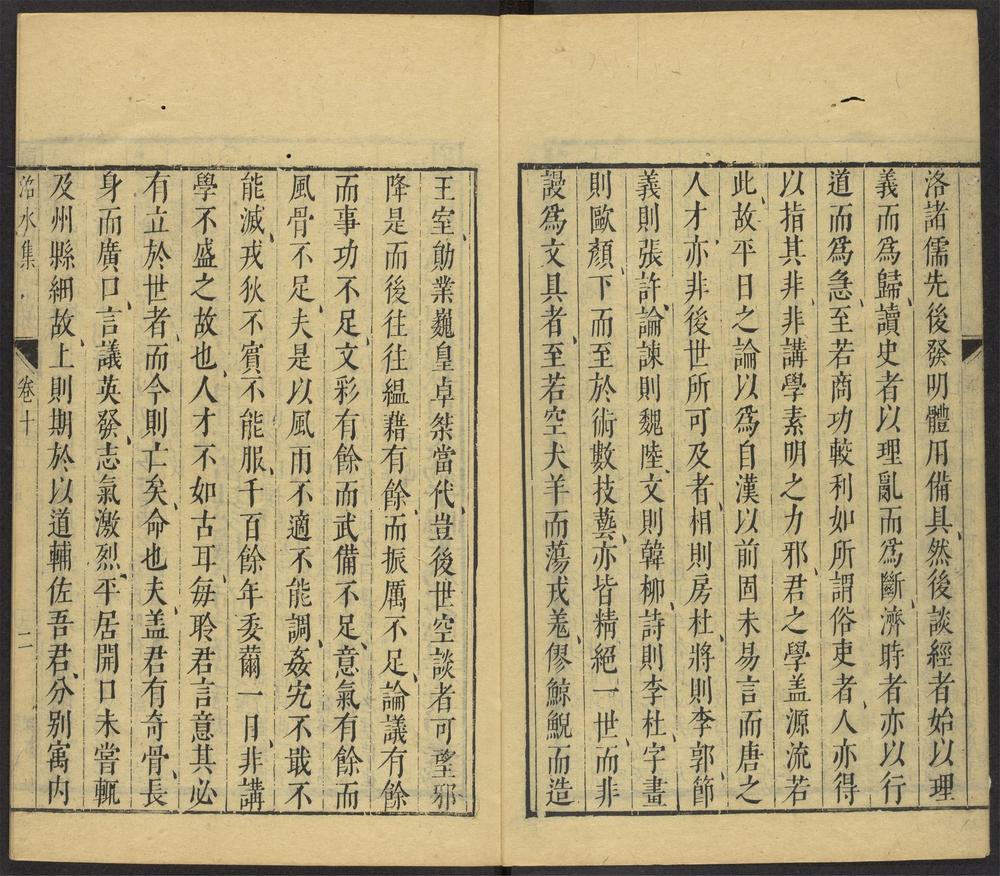 洛諸儒先後發明體用備具然後談經者始以理
義而爲歸讀史者以理亂而爲斷濟時者亦以行
道而爲急至若商功較利如所謂俗吏者人亦得
以指其非非講學素明之力邪君之學盖源流若
此故平日之論以爲自漢以前固未易言而唐之
人才亦非後世所可及者相則房杜將則李郭節
義則張許論諫則魏陸文則韓柳詩則李杜字畫
則歐顏下而至於術數技藝亦皆精絕一世而非
謾爲文具者至若空犬羊而蕩戎羗僇鯨鯢而造
王室勛業巍皇卓桀當代豈後世空談者可望邪
降是而後往往緼藉有餘而振厲不足論議有餘
而事功不足文彩有餘而武備不足意氣有餘而
風骨不足夫是以風雨不適不能調姦宄不戢不
能滅戎狄不賓不能服千百餘年委薾一日非講
學不盛之故也人才不如古耳每聆君言意其必
有立於世者而今則亡矣命也夫盖君有奇骨長
身而廣口言議英發志氣激烈平居開口未嘗輒
及州縣細故上則期於以道輔佐吾君分别寓内
洺水集
卷十
二